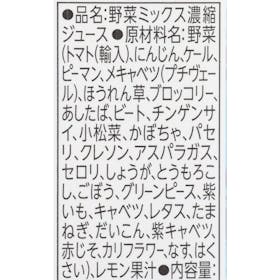 ●品名:野菜ミックス濃縮
ジュース●原材料名:野菜
(トマト(輸入)、にんじん、ケール、
ピーマン、メキャベツ(プチヴェー
ル)、ほうれん草、ブロッコリー、
あしたば、ビート、チンゲンサ
イ、小松菜、かぼちゃ、パセ
リ、クレソン、アスパラガス、
セロリ、しょうが、とうもろこ
し、ごぼう、グリーンピース、紫
いも、キャベツ、レタス、たま
ねぎ、だいこん、紫キャベツ、
赤じそ、カリフラワー、なす、はく
さい)、レモン果汁●内容量: